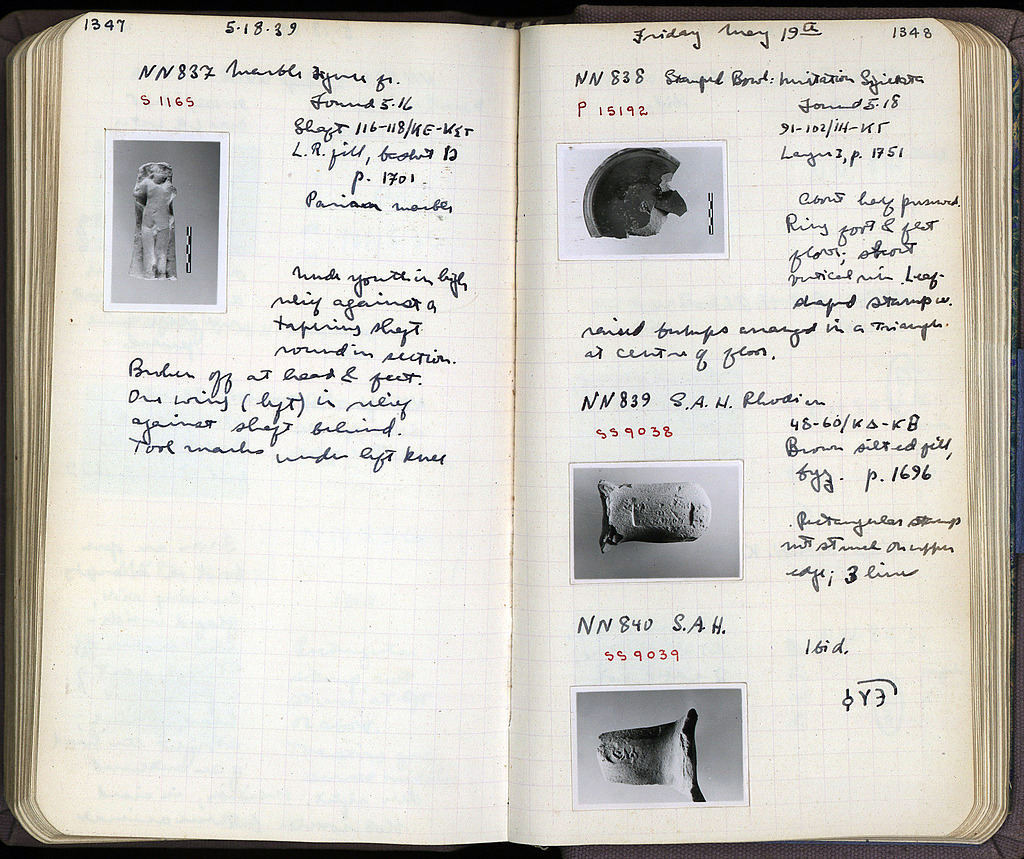 1347
5·18·39
NN837 Marble figure fr.
S 1165
Found 5·16
Shaft 116-118/ΚΕ-ΚΣΤ
L.R. fill, basket 13
p. 1701
Parian marble
Nude youth in high
relief against a
tapering shaft
round in section.
Broken off at head & feet.
One wing (left) in relief
against shaft behind.
Tool marks under left knee
Friday May 19th
1348
NN 838 Stamped Bowl: Imitation
P 15192
Found 5·18
91-102/
Layer 3, p. 1751
About half preserved.
Ring foot & flat
floor; short
vertical rim. Leaf-
shaped stamp w.
raised bumps arranged in a triangle.
at centre of floor.
NN839 S.A.H. Rhodian
SS 9038
48-60/ΚΔ-ΚΒ
Brown silted fill,
byz. p. 1696
Rectangular stamp
not struck on upper
edge; 3 lines
NN 840 S.A.H.
SS 9039
Ibid.